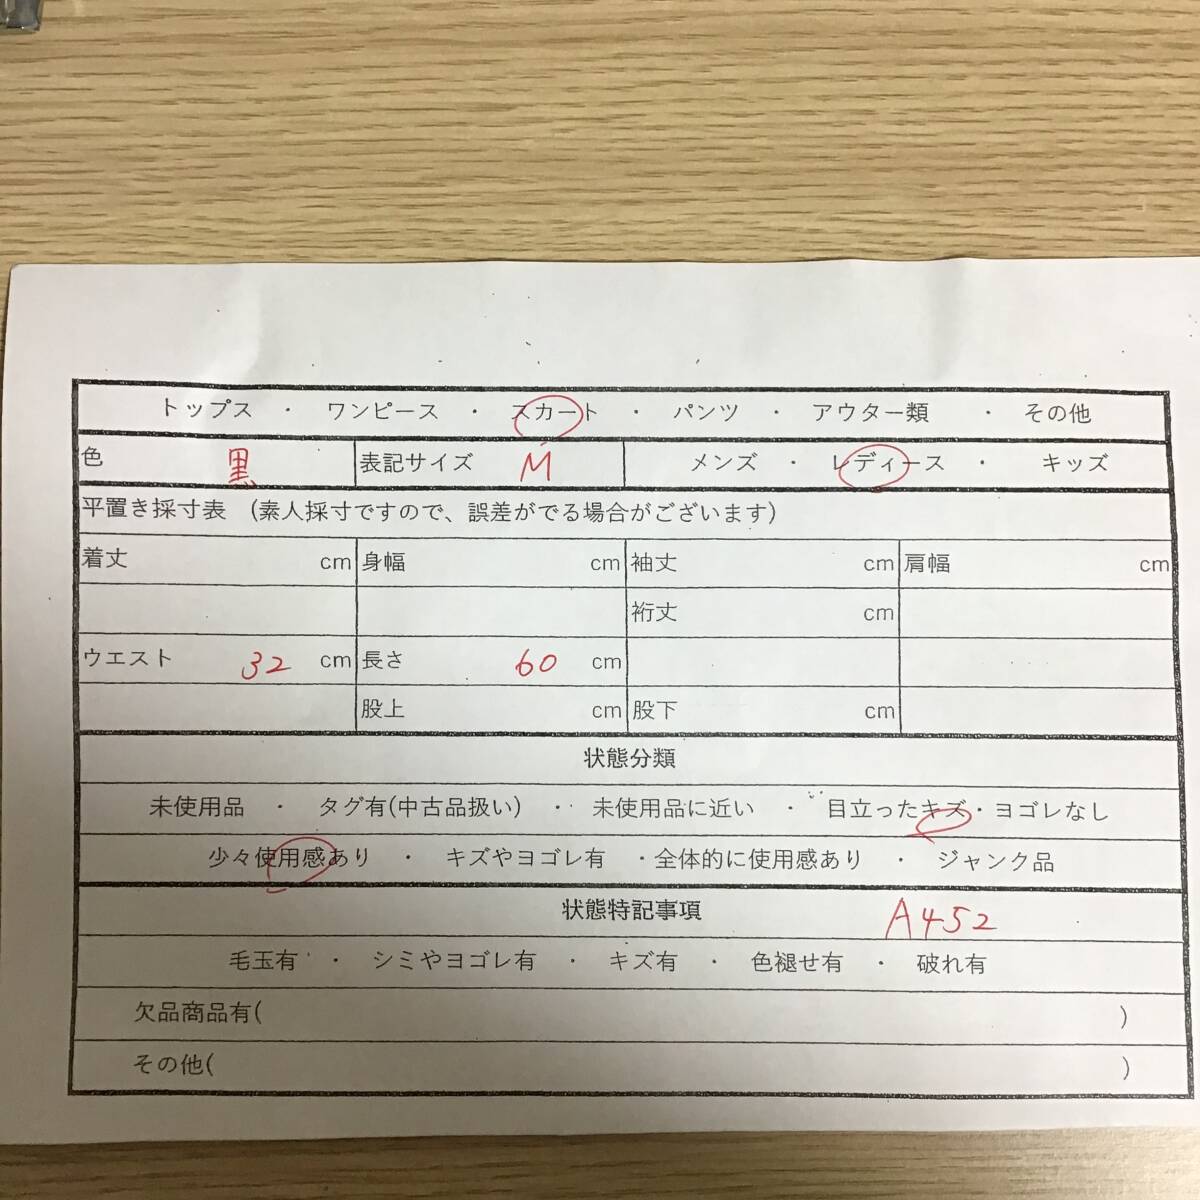 トップス ・ ワンピース ・ スカート ・ パンツ ・ アウター類 ・ その他
色 黒 表記サイズ M メンズ ・ レディース ・ キッズ
平置き採寸表 (素人採寸ですので、誤差がでる場合がございます)
着丈 cm 身幅 cm 袖丈 cm 肩幅 cm
裄丈 cm
ウエスト 32 cm 長さ 60 cm
股上 cm 股下 cm
状態分類
未使用品 ・ タグ有(中古品扱い) ・ 未使用品に近い ・ 目立ったキズ・ヨゴレなし
少々使用感あり ・ キズやヨゴレ有 ・全体的に使用感あり ・ ジャンク品
状態特記事項 A452
毛玉有 ・ シミやヨゴレ有 ・ キズ有 ・ 色褪せ有 ・ 破れ有
欠品商品有( )
その他( )